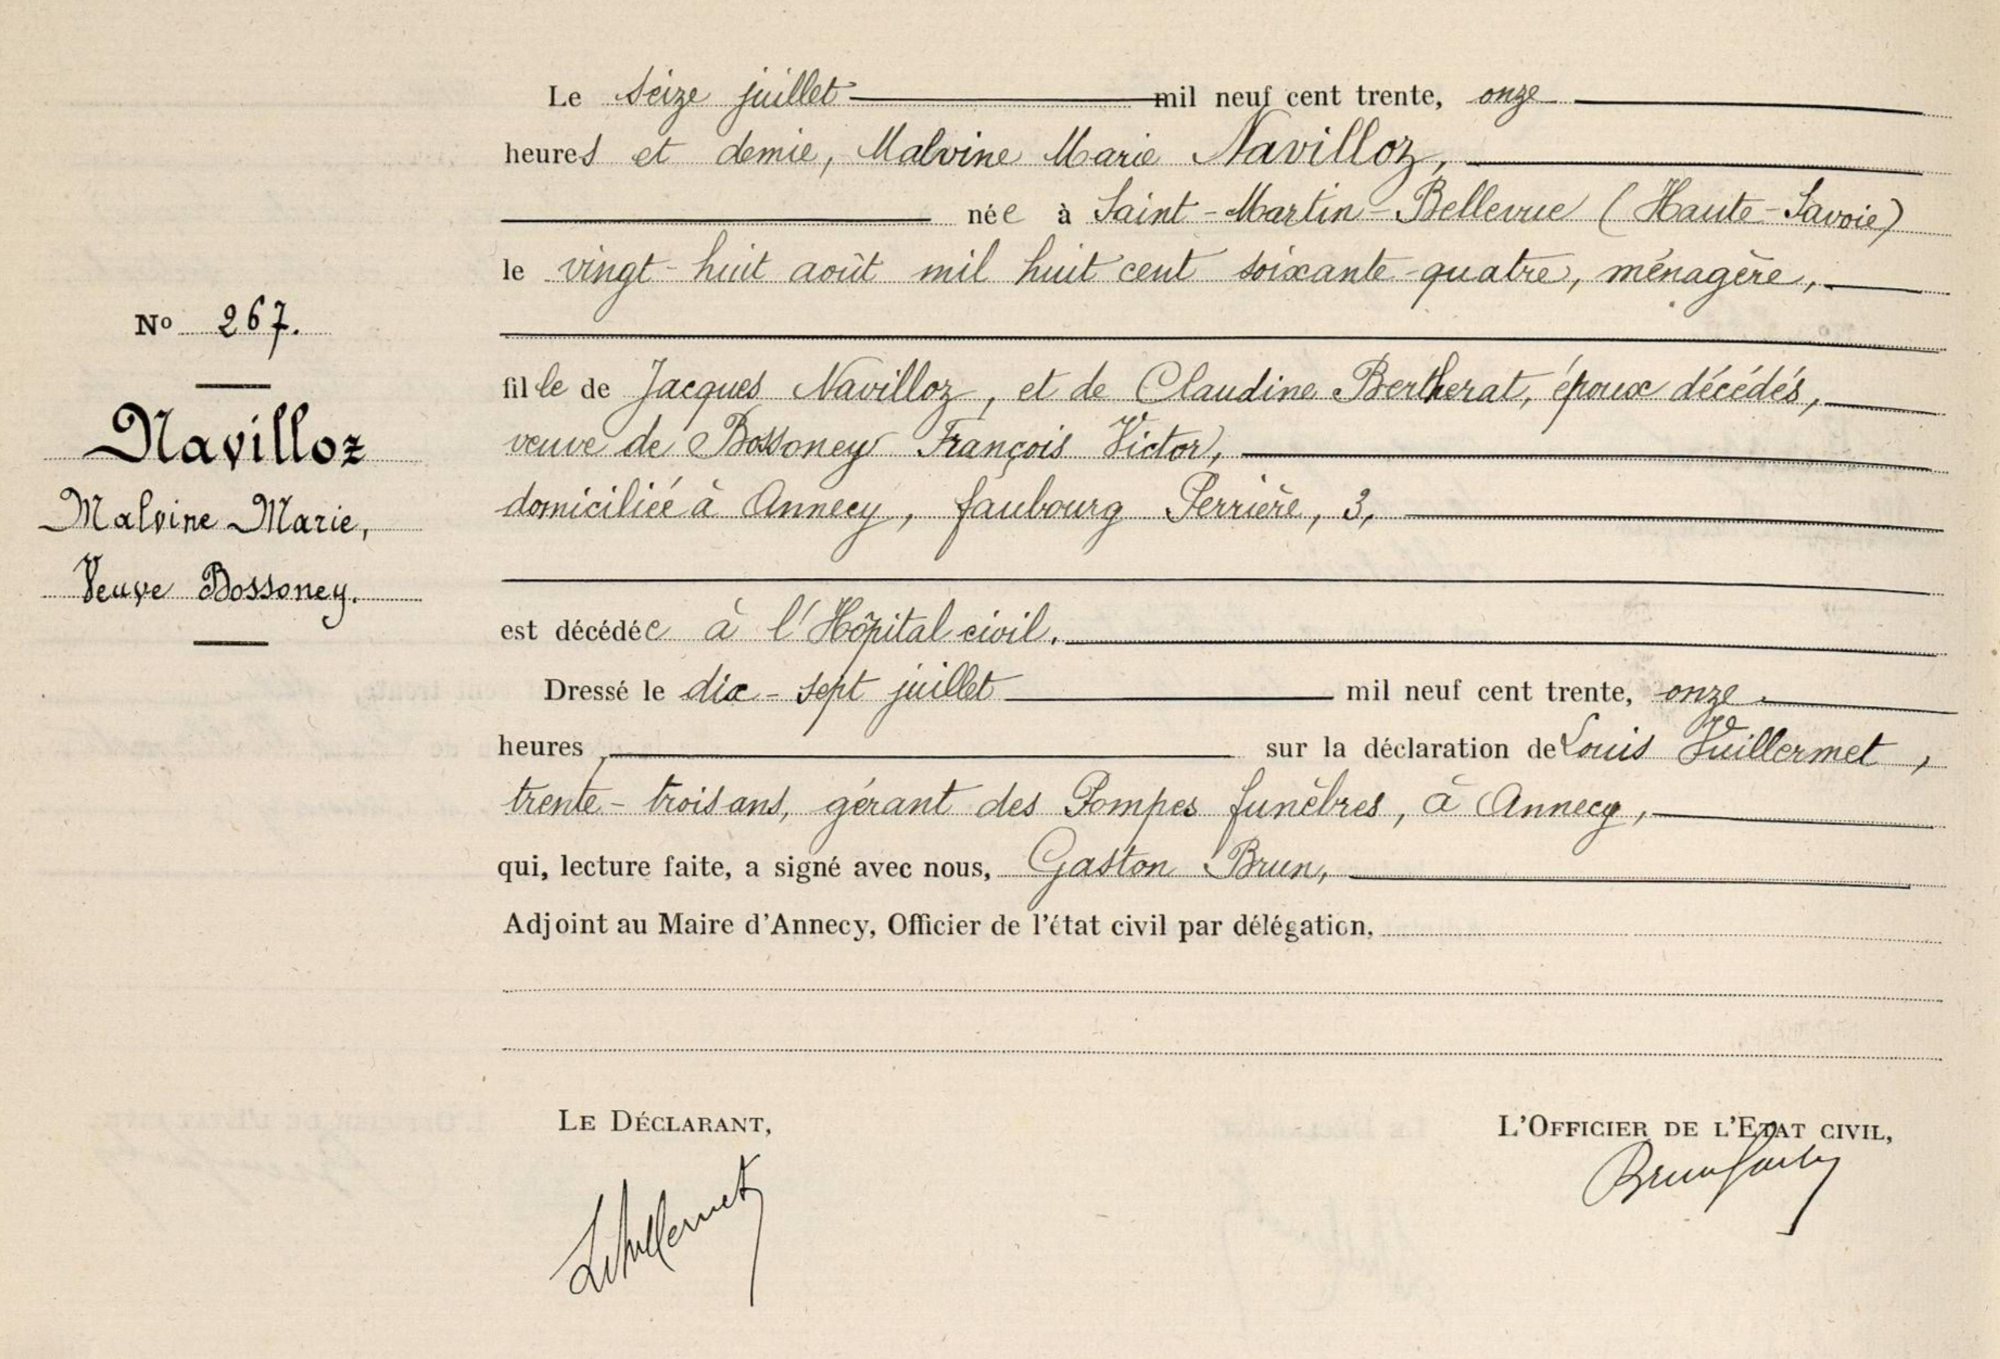 Le seize juillet mil neuf cent trente, onze
heures et demie, Malvine Marie Navilloz,
née à Saint-Martin-Bellevue (Haute-Savoie)
le vingt-huit août mil huit cent soixante-quatre, ménagère,
No 267.
fille de Jacques Navilloz, et de Claudine Bertherat, époux décédés,
Navilloz
veuve de Bossoney François Victor,
Malvine Marie,
domiciliée à Annecy, faubourg Perrière, 3,
Veuve Bossoney.
est décédée à l'Hôpital civil.
Dressé le dix-sept juillet mil neuf cent trente, onze
heures, sur la déclaration de Louis Vuillermet,
trente-trois ans, gérant des Pompes funèbres, à Annecy,
qui, lecture faite, a signé avec nous, Gaston Brun,
Adjoint au Maire d'Annecy, Officier de l'état civil par délégation,
LE DÉCLARANT,
L'OFFICIER DE L'ETAT CIVIL,